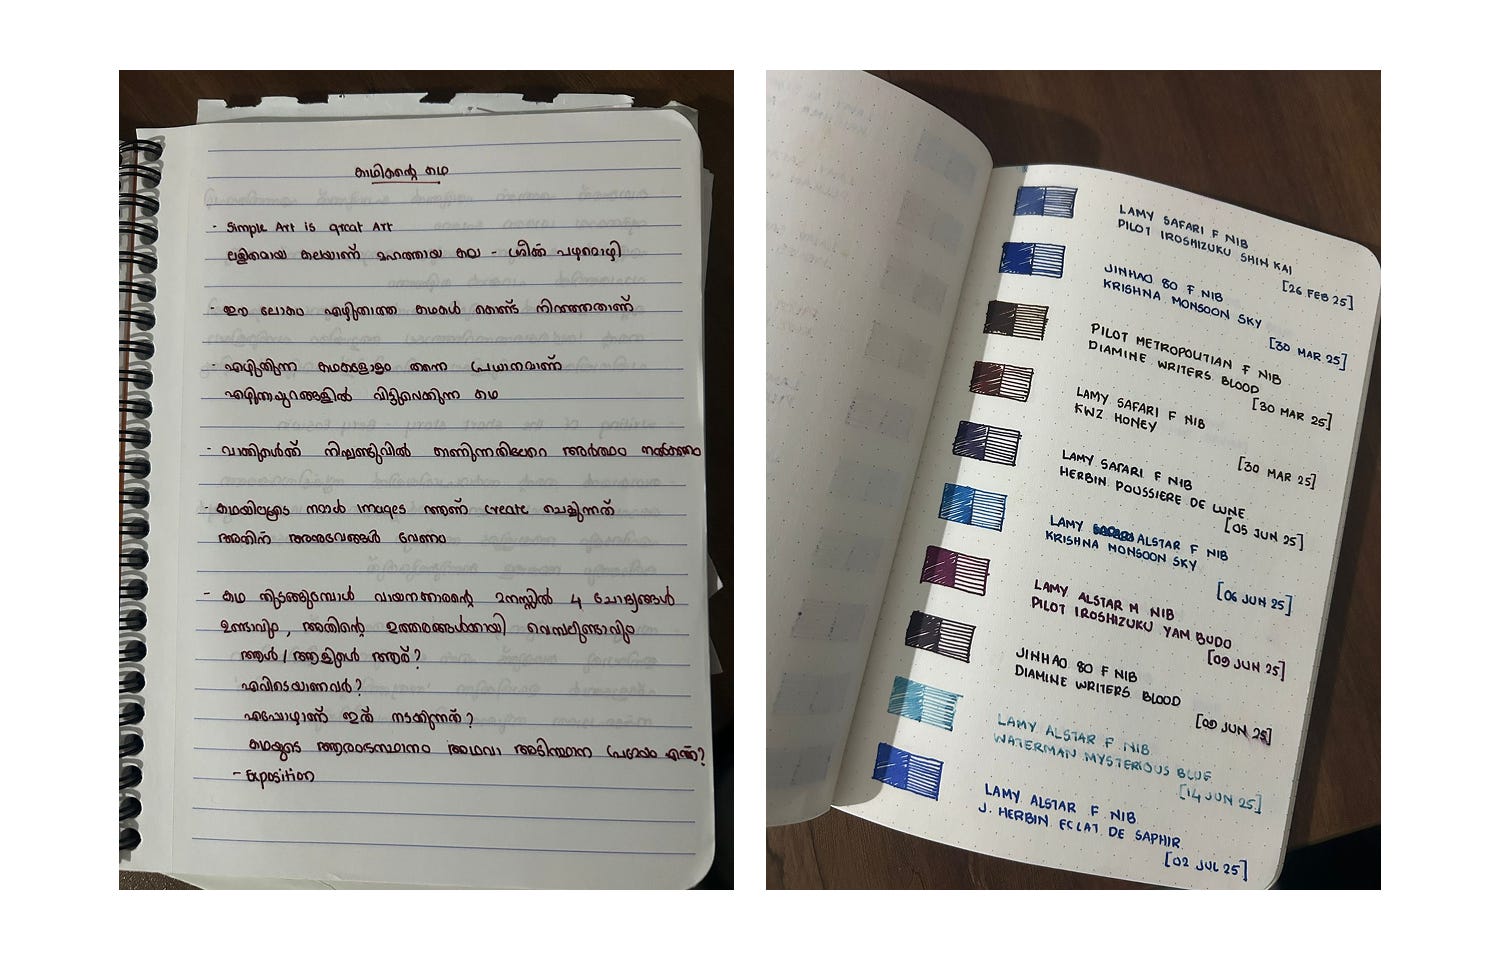 കാഥികന്റെ കഥ
- Simple Art is great Art
ലളിതമായ കലയാണ് മഹത്തായ കല - ഗ്രീക്ക് പഴമൊഴി
- ഈ ലോകം എഴുതാത്ത കഥകൾ കൊണ്ട് നിറഞ്ഞതാണ്
- എഴുതുന്ന കഥകളോളം തന്നെ പ്രധാനമാണ്
എഴുത്തുപുറങ്ങളിൽ വിട്ടുവെക്കുന്ന കഥ
- വാക്കുകൾക്ക് നിഘണ്ടുവിൽ കാണുന്നതിലേറെ അർത്ഥം നൽകണം
- കഥയിലൂടെ നമ്മൾ images ആണ് create ചെയ്യുന്നത്
അതിന് അനുഭവങ്ങൾ വേണം
- കഥ തുടങ്ങുമ്പോൾ വായനക്കാരന്റെ മനസ്സിൽ 4 ചോദ്യങ്ങൾ
ഉണ്ടാവും, അതിന്റെ ഉത്തരങ്ങൾക്കായി വെമ്പലുണ്ടാവും
ആൾ / ആളുകൾ ആര്?
എവിടെയാണവർ?
എപ്പോഴാണ് ഇത് നടക്കുന്നത്?
കഥയുടെ ആരംഭസ്ഥാനം അഥവാ അടിസ്ഥാന പ്രശ്നം എന്ത്?
- Exposition
LAMY SAFARI F NIB
PILOT IROSHIZUKU SHIN KAI
[26 FEB 25]
JINHAO 80 F NIB
KRISHNA MONSOON SKY
[30 MAR 25]
PILOT METROPOLITIAN F NIB
DIAMINE WRITERS BLOOD
[30 MAR 25]
LAMY SAFARI F NIB
KWZ HONEY
[30 MAR 25]
LAMY SAFARI F NIB
HERBIN POUSSIERE DE LUNE
[05 JUN 25]
LAMY ALSTAR F NIB
KRISHNA MONSOON SKY
[06 JUN 25]
LAMY ALSTAR M NIB
PILOT IROSHIZUKU YAM BUDO
[09 JUN 25]
JINHAO 80 F NIB
DIAMINE WRITERS BLOOD
[09 JUN 25]
LAMY ALSTAR F NIB
WATERMAN MYSTERIOUS BLUE
[14 JUN 25]
LAMY ALSTAR F NIB
J. HERBIN ECLAT DE SAPHIR
[02 JUL 25]